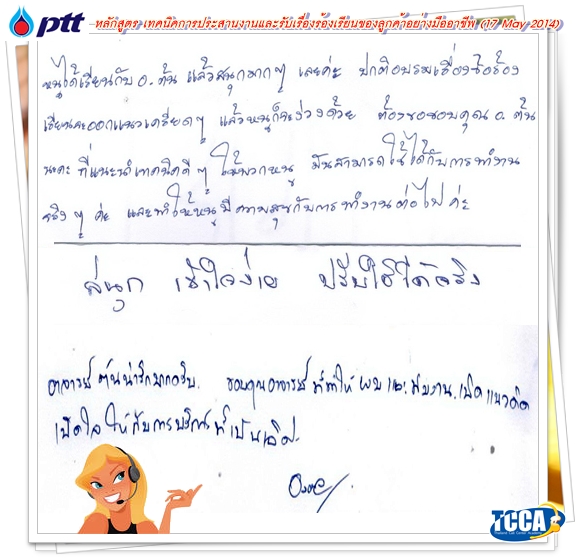 ptt หลักสูตร เทคนิคการประสานงานและรับเรื่องร้องเรียนของลูกค้าอย่างมืออาชีพ (17 May 2014)
หนูได้เรียนกับ อ. ต้น แล้วสนุกมากๆ เลยค่ะ ปกติอบรมเรื่องข้อร้อง
เรียนจะออกแนวเครียดๆ แล้วหนูก็จะง่วงด้วย ต้องขอขอบคุณ อ. ต้น
นะคะ ที่แนะนำเทคนิคดีๆ ให้พวกหนู มันสามารถใช้ได้กับการทำงาน
จริงๆ ค่ะ และทำให้หนูมีความสุขกับการทำงานต่อไปค่ะ
สนุก เข้าใจง่าย ปรับใช้ได้จริง
อาจารย์ ต้นน่ารักมากครับ. ขอบคุณอาจารย์ ที่ทำให้ ผมและทีมงาน เปิดแนวคิด
เปิดใจ ให้กับการบริการที่เป็นเลิศ.
TCCA